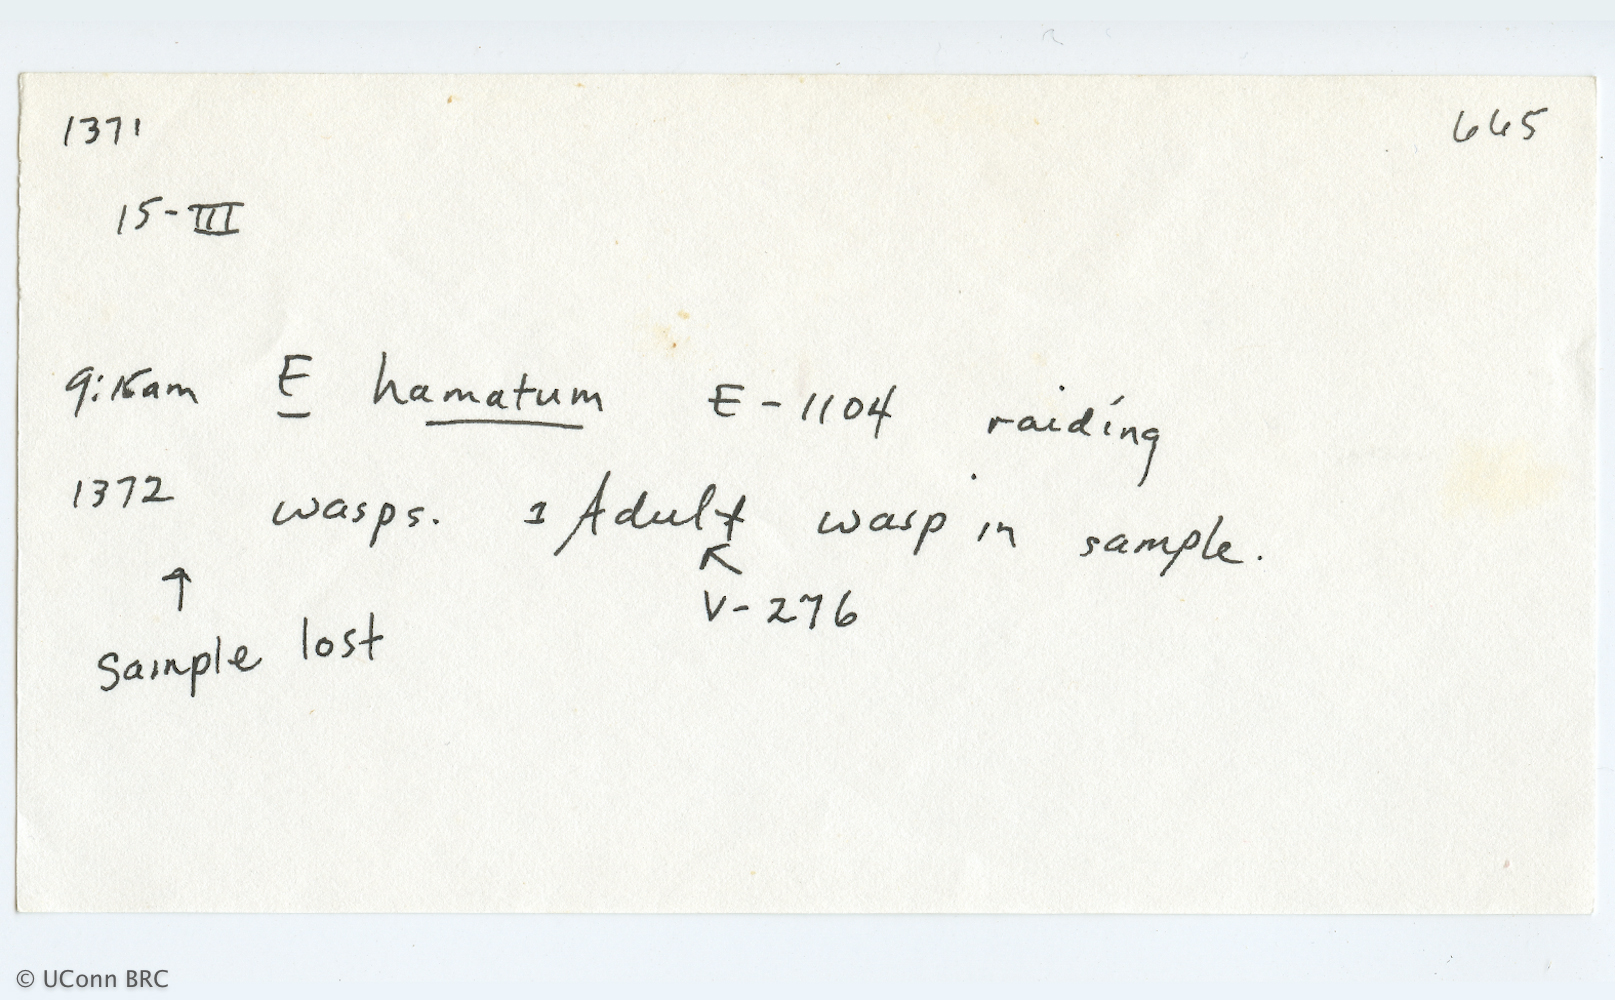 1371 665
15-III
9:15am E hamatum E-1104 raiding
1372 wasps. 1 Adult wasp in sample.
↑ ↖
V-276
Sample lost
© UConn BRC